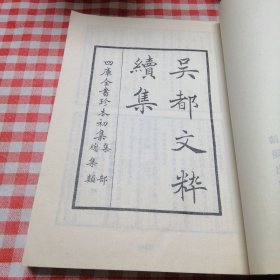 吳都文粹
續集
四庫全書珍本初集集部
總集類